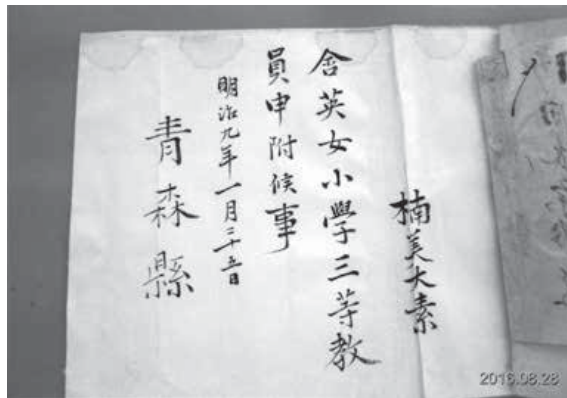 楠美太素
含英女小學三等教
員申附候事
明治九年一月二十五日
青森縣
2016.08.28